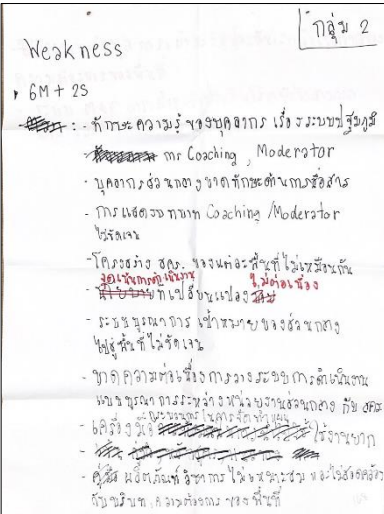 กลุ่ม 2
Weakness
6M + 2S
: - ทักษะความรู้ของบุคลากร เรื่องระบบปฐมภูมิ
- การ Coaching, Moderator
- บุคลากรส่วนกลางขาดทักษะด้านการสื่อสาร
- การแสดงบทบาท Coaching /Moderator
ไม่ชัดเจน
- โครงสร้าง สคร. ของแต่ละพื้นที่ไม่เหมือนกัน
จุดเน้นการดำเนินงาน ไม่ต่อเนื่อง
ที่เปลี่ยนแปลง
- ระบบบูรณาการ เป้าหมายของส่วนกลาง
ไปสู่พื้นที่ไม่ชัดเจน
- ขาดความต่อเนื่องการวางระบบการดำเนินงาน
แบบบูรณาการระหว่างหน่วยงานส่วนกลาง กับ สคร
กระบวนการในการจัดทำแผน
- เครื่องมือ ใช้งานยาก
- คู่มือ ผลิตภัณฑ์ วิชาการ ไม่เหมาะสม และไม่สอดคล้อง
กับบริบท ความต้องการ ของพื้นที่